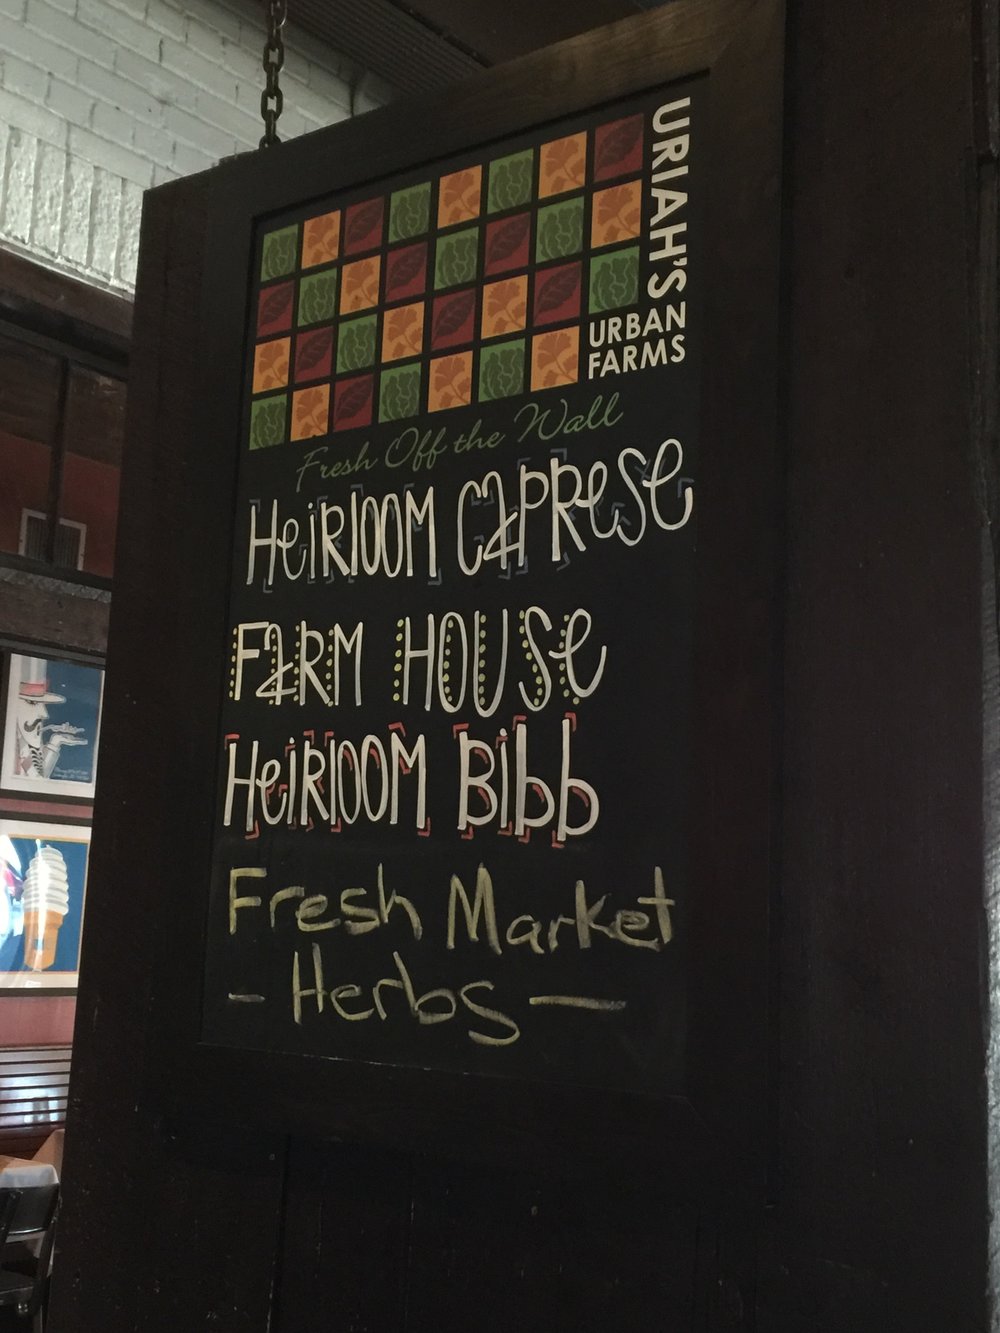 URIAH'S
URBAN
FARMS
Fresh Off the Wall
HeiRLOOM CaPReSe
FaRM HOUSe
HeiRLOOM Bibb
Fresh Market
- Herbs -